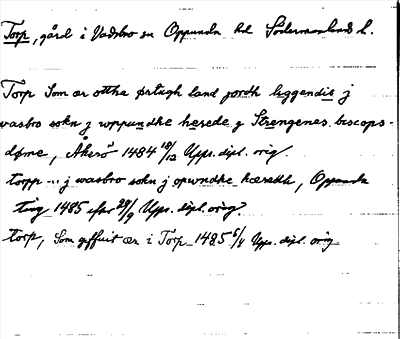 Torp, gård i Vadsbro sn Oppunda hd Södermanlands l.
Torp Som ær ottha ørtugh land jordh liggendis j
wasbro sokn j wppundke herede j Strengenes biscops-
døme, Åkerö 1484 18/12 Upps. dipl. orig.
torpp - j wasbro sokn j opwndke hæradh, Oppunda
ting 1485 efter 29/9 Upps. dipl. orig.
torp, Som giffuit ær i Torp 1485 6/4 Upps. dipl. orig